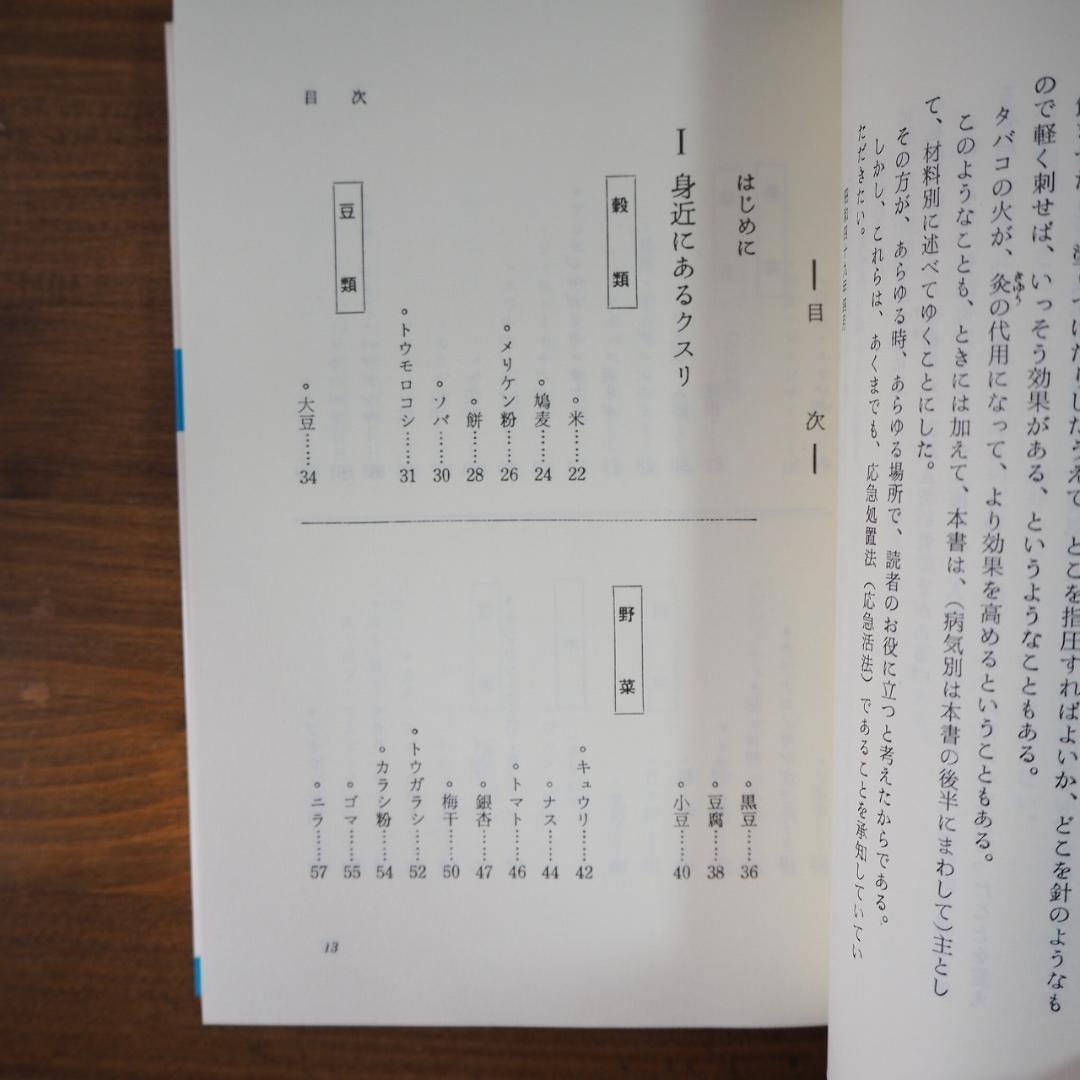 ので軽く刺せば、いっそう効果がある、というようなこともある。
タバコの火が、灸の代用になって、より効果を高めるということもある。
きゆう
このようなことも、ときには加えて、本書は、(病気別は本書の後半にまわして)主とし
て、材料別に述べてゆくことにした。
その方が、あらゆる時、あらゆる場所で、読者のお役に立つと考えたからである。
しかし、これらは、あくまでも、応急処置法(応急活法)であることを承知していてい
ただきたい。
目次
はじめに
I 身近にあるクスリ
穀類
米……22
鳩麦……24
メリケン粉……26
餅……28
ソバ……30
トウモロコシ……31
豆類
大豆……34
黒豆……36
豆腐……38
小豆……40
野菜
キュウリ……42
ナス……44
トマト……46
銀杏……47
梅干……50
トウガラシ……52
カラシ粉……54
ゴマ……55
ニラ……57
目次
13